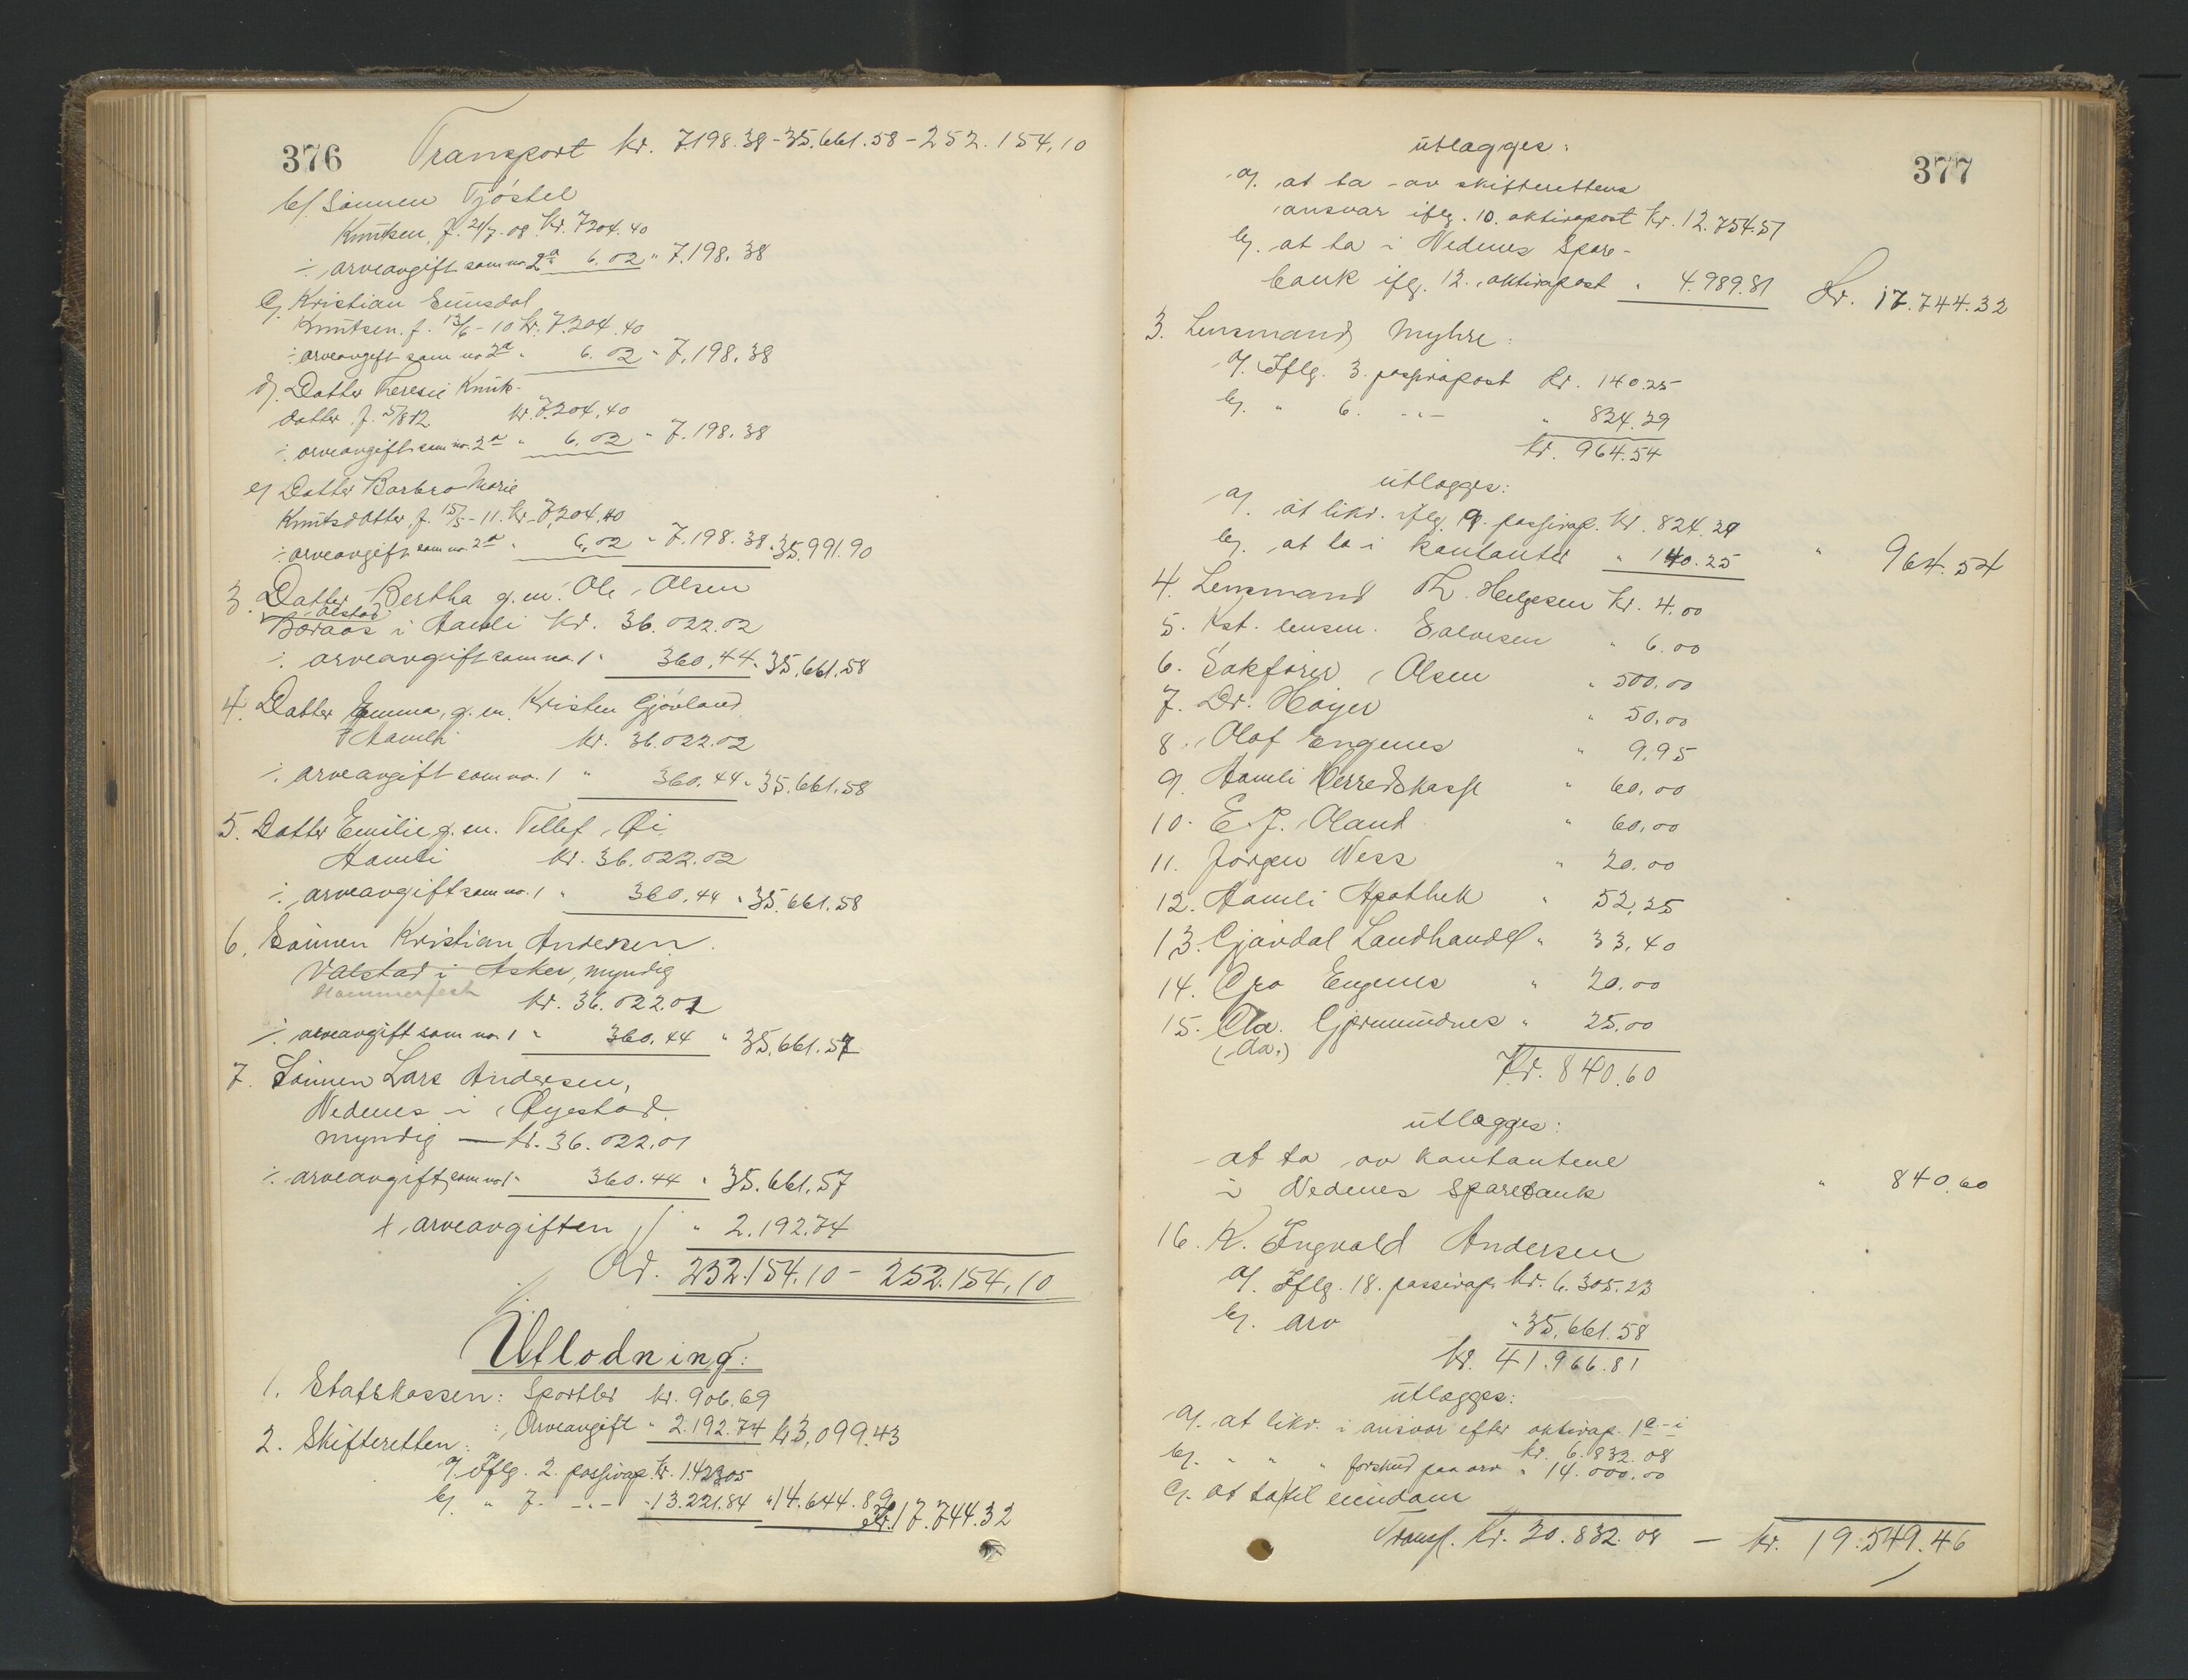 376
Transport kr. 7.198.38 - 35.661.58 - 252.154.10
b/ Sønnen Tjøstel
Knutsen, f. 21/7-08 kr. 7204.40
÷ arveavgift som no. 2a 6.02 " 7.198.38
c/ Kristian
Knutsen. f. 13/6-10 kr. 7.204.40
÷ arveavgift som no 2a " 6.02 " 7.198.38
d/ Datter Teresie Knuts-
datter f. 5/8 12 kr. 7.204.40
÷ arveavgift som no. 2a " 6.02 " 7.198.38
e/ Datter Barbro Marie
Knutsdatter, f. 15/5-11. kr. 7.204.40
÷ arveavgift som no. 2a " 6.02 " 7.198.38 " 35.991.90
3. Datter Bertha g. m. Ole Olsen
Ølstad
i Aamli kr. 36.022.02
÷ arveavgift som no. 1 " 360.44 " 35.661.58
4. Datter Emma, g. m. Kristen Gjøvland
Aamli kr. 36.022.02
÷ arveavgift som no. 1 " 360.44 " 35.661.58
5. Datter Emilie g. m. Tellef Øi
Aamli kr. 36.022.02
÷ arveavgift som no. 1 " 360.44 " 35.661.58
6. Sønnen Kristian Andersen.
Valstad i Asker, myndig
Hammerfest
kr. 36.022.01
÷ arveavgift som no. 1 " 360.44 " 35.661.57
7. Sønnen Lars Andersen,
Nedenes i Øyestad
myndig — kr. 36.022.01
÷ arveavgift som no 1 " 360.44 " 35.661.57
+ arveavgiften " 2.192.74
Kr. 252.154.10 - 252.154.10
Utlodning:
1. Statskassen: Sportler kr. 906.69
: Arveavgift " 2.192.74 kr 3.099.43
2. Skifteretten:
a/ Iflg. 2. passivap. kr. 1.423.05
b/ " 7. -"- " 13.221.84 " 14.644.89
Kr. 17.744.32
377
utlægges:
a/. at ta av skifterettens
ansvar iflg. 10. aktivapost kr. 12.754.51
b/. at ta i Nedenes Spare-
bank iflg. 12. aktivapost " 4.989.81 Kr. 17.744.32
3. Lensmand Myhre:
a/. Iflg. 3. passivapost kr. 140.25
b/. " 6. -"- " 824.29
kr. 964.54
utlægges:
a/. at likv. iflg. 9. passivap. kr. 824.29
b/. at ta i kontanter " 140.25 " 964.54
4. Lensmand Th. Helgesen kr. 4.00
5. Kst. lensm. Salvesen " 6.00
6. Sakfører Olsen " 500.00
7. Dr. Høyer " 50.00
8. Olaf Engenes " 9.95
9. Aamli Herredskasse " 60.00
10. E. J. Øland " 60.00
11. Jørgen Ness " 20.00
12. Aamli Apothek " 52.25
13. Gjøvdal Landhandel " 33.40
14. Gro Engenes " 20.00
15. Gjermundnes " 25.00
Kr. 840.60
utlægges:
at ta av kontantene
i Nedenes Sparebank " 840.60
16. K. Ingvald Andersen
a/. Iflg. 18. passivap. kr. 6.305.23
b/. arv " 35.661.58
kr. 41.966.81
utlægges:
a/. at likv. i ansvar efter aktivap. 1 a - i
kr. 6.832.08
b/. " " " forskud paa arv " 14.000.00
c/. at ta til eiendom
Transp. kr. 20.832.08 — kr. 19.549.46